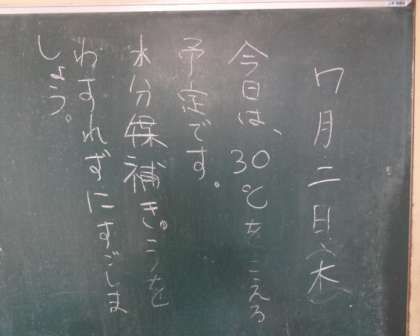 7月二日(木)
今日は、30℃をこえる
予定です。
水分補きゅうを
わすれずにすごしま
しょう。